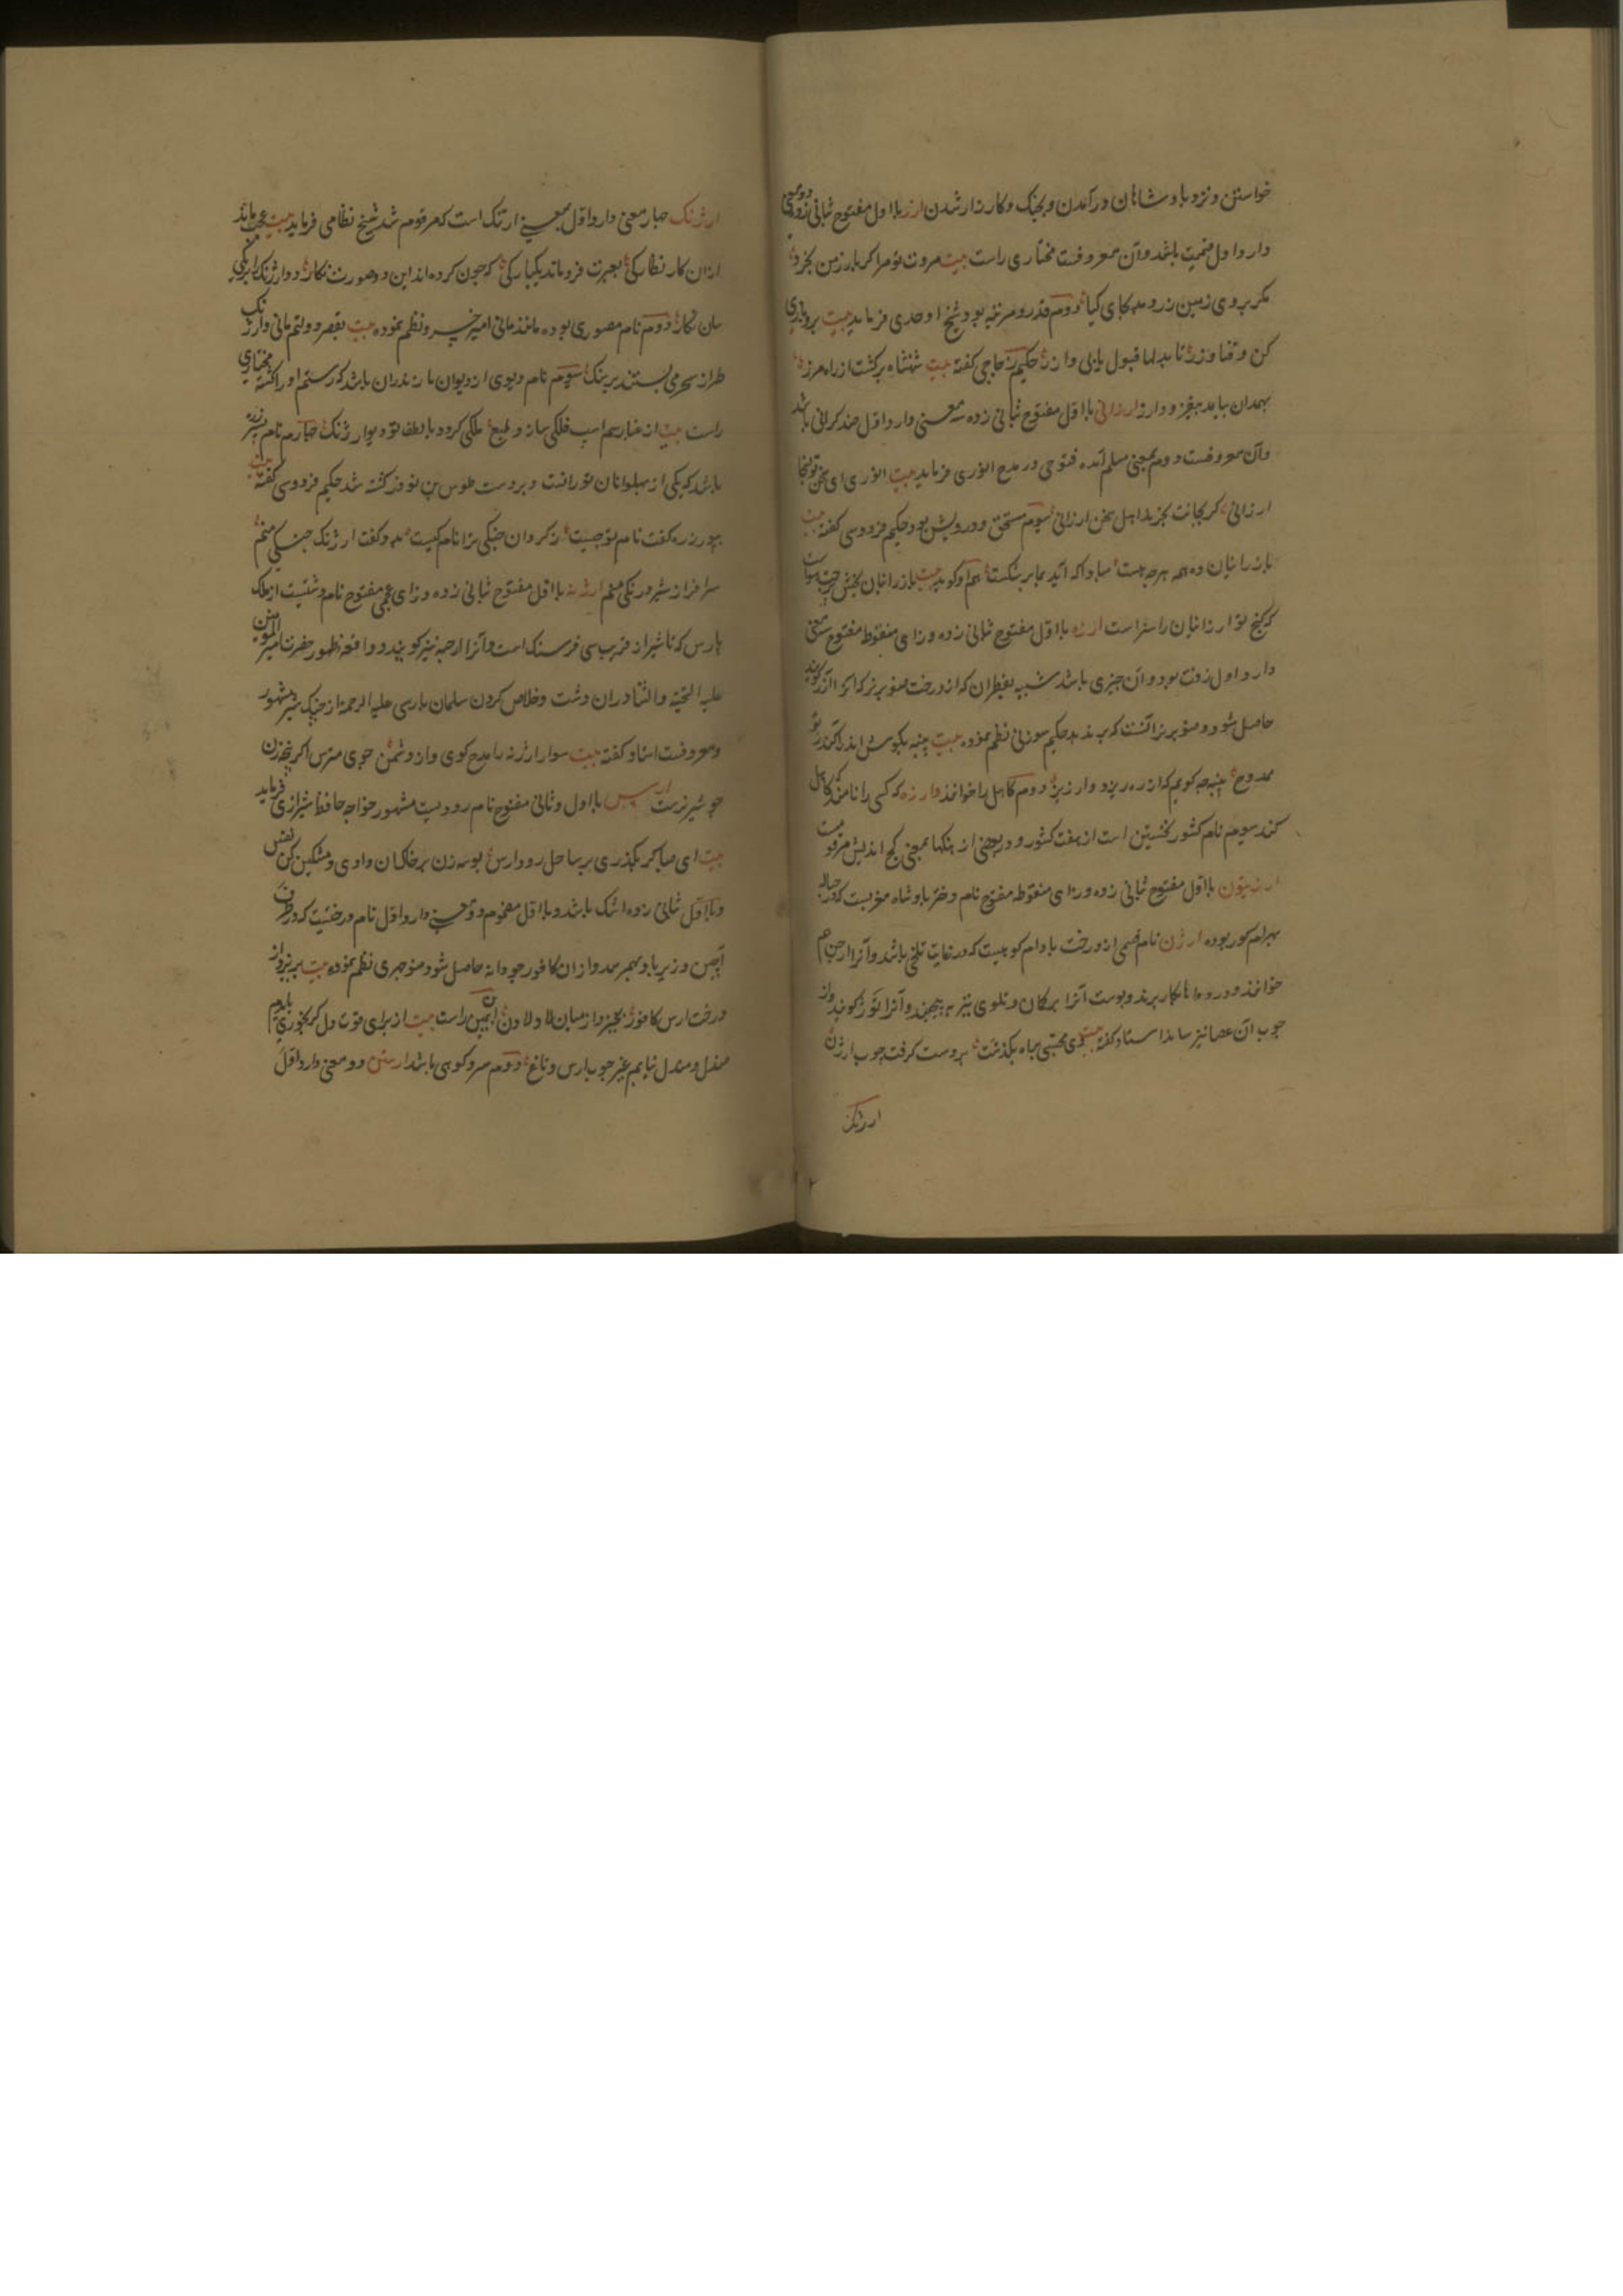 خواستن و نزد بادشاهان در آمدن و بجنک و کارزار شدن ارز با اول مفتوح ثانی زده دو معنی
دارد اول قیمت باشد و آن معروفست مختاری راست بیت مروت تو مرا کر بارز من بخرد
مکر بروی زمین زر دمد بجای کیا دوم قدر و مرتبه بود شیخ اوحدی فرماید بیت بردباری
کن و قناعت ورز تا بدلها قبول یابی و ارز حکیم زجاجی کفته بیت شهنشاه برکشت از راه مرز
بهمدان بیامد بفر و ارز ارزانی با اول مفتوح ثانی زده سه معنی دارد اول ضد کرانی باشد
و آن معروفست دوم بمعنی مسلم آمده فتوحی در مدح انوری فرماید بیت انوری ای سخن تو بسخا
ارزانی کر بجانت بخرند اهل سخن ارزانی سوم مستحق و درویش بود حکیم فردوسی کفته بیت
بارزانیان ده همه هرچه هست مبادا که آید بما بر شکست هم او کوید بیت بارزانیان بخش
که کنج تو ارزانیان را سزاست ارزه با اول مفتوح ثانی زده و زای منقوط مفتوح سه معنی
دارد اول زفت بود و آن چیزی باشد شبیه بقطران که از درخت صنوبر نر که انرا ارز کویند
حاصل شود و صنوبر نر آنست که بر ندهد حکیم سوزنی نظم نموده بیت پنبه بکوش اندر آکند ز تو
ممدوح پنبه چه کویم که ارزه ریزد و ارزیز دوم کاهل را خوانند و ارزه که کسی را نامزد کاهل
کنند سوم نام کشور نخستین است از هفت کشور و در بعضی از
ارزیتون با اول مفتوح ثانی زده و زای منقوطه مفتوح نام دختر بادشاه مغربست که در حباله
بهرام کور بوده ارژن نام قسمی از درخت بادام کوهیست که در غایت تلخی باشد و آنرا ارجن هم
خوانند و در دواها بکار برند و پوست آنرا بر کمان و تلوی تیر بپیچند و آنرا توز کویند و از
چوب آن عصا نیز سازند استاد کفته بیت وی محتسبی براه بکذشت بر دست کرفته چوب ارژن
ارژنک
ارژنک چهار معنی دارد اول بمعنی ارتنک است که مرقوم شد شیخ نظامی فرماید بیت عجب ماند
از آن کار نظارکی بعبرت فرو ماند یکبارکی که چون کرده اند این دو صورت نکار دو ارژنک را بر یکی
سان نکار دوم نام مصوری بوده مانند مانی امیر خسرو نظم نموده بیت بقصر دولتم مانی و ارژنک
طراز سحر می بستند بر سنک سوم نام دیوی از دیوان مازندران باشد که رستم او را کشته مختاری
راست بیت از غبار سم اسب فلکی سازد طبع ملکی کردد با لطف تو دیو ارژنک چهارم نام پسر زره
باشد که یکی از پهلوانان تورانست و بر دست طوس بن نوذر کشته شد حکیم فردوسی کفته بیت
بپور زره کفت نام تو چیست ز کردان جنکی ترا نام کیست بدو کفت ارژنک جنکی منم
سر افراز شیر درنکی منم ارژنه با اول مفتوح ثانی زده و زای عجمی مفتوح نام دشتیست از ملک
پارس که تا شیراز قریب سی فرسنک است و آنرا ارجنه نیز کویند و واقعه ظهور حضرت امیر المومنین
علیه التحیة و الثنا در آن دشت و خلاص کردن سلمان پارسی علیه الرحمة از چنک شیر مشهور
و معروفست استاد کفته بیت سوار ارژنه را مدح کوی و از دشمن جوی مترس اکر پنجه زن
چو شیر نرست ارس با اول و ثانی مفتوح نام رودیست مشهور خواجه حافظ شیرازی فرماید
بیت ای صبا کر بکذری بر ساحل رود ارس بوسه زن بر خاک آن وادی و مشکین کن نفس
و با اول ثانی زده اشک باشد و با اول مضموم دو معنی دارد اول نام درختیست که در طرف
آچین و زیرباد بهم رسد و از آن کافور جودانه حاصل شود منوچهری نظم نموده بیت بریزد از
درخت ارس کافور بخیزد از میان لاد لادن ابن یمین راست بیت از برای قوت دل کر بخوری بایدم
صندل و مندل نیابم غیر چوب ارس و تاغ دوم سرو کوهی باشد ارستن دو معنی دارد اول